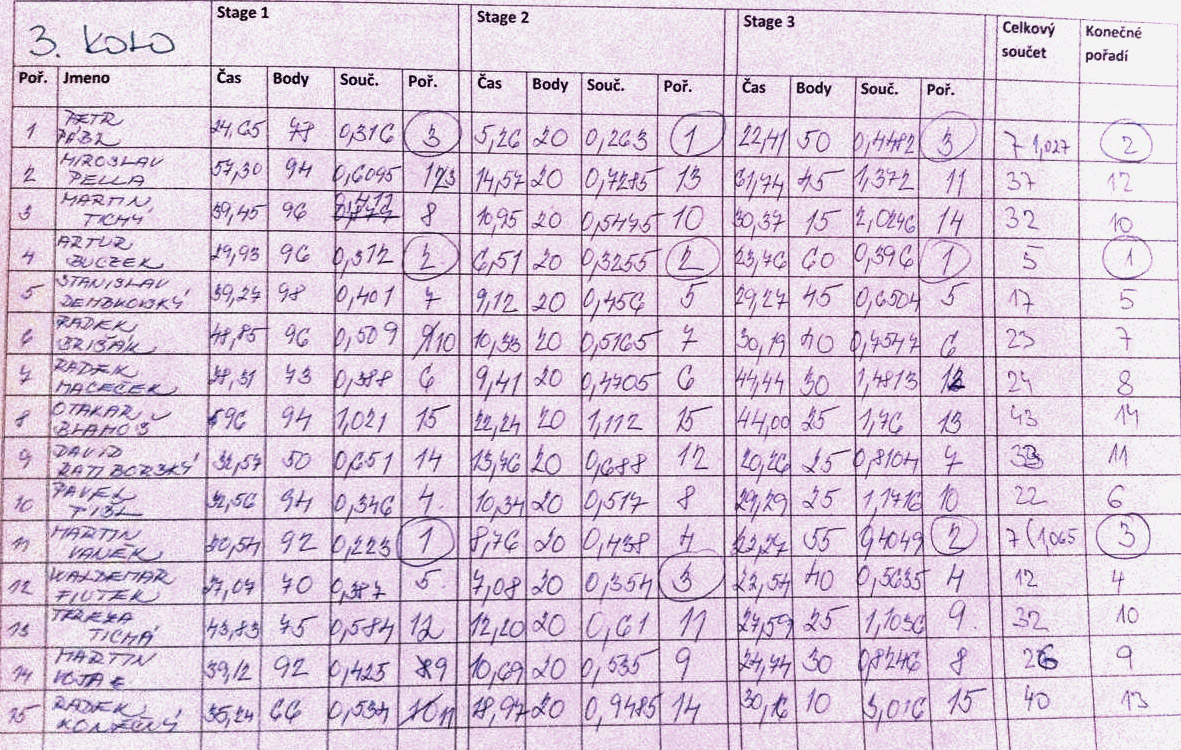 3. KOLO Stage 1 Stage 2 Stage 3 Celkový součet Konečné pořadí
Poř. Jmeno Čas Body Souč. Poř. Čas Body Souč. Poř. Čas Body Souč. Poř.
1 PETR PÁBL 24,65 78 0,316 3 5,26 20 0,263 1 22,41 50 0,4482 3 7 1,027 2
2 MIROSLAV PELLA 57,30 94 0,6095 13 14,57 20 0,7285 13 61,74 45 1,372 11 37 12
3 MARTIN TICHÝ 39,45 96 0,411 8 10,95 20 0,5475 10 30,37 15 2,0246 14 32 10
4 ARTUR BUCZEK 29,93 96 0,312 2 6,51 20 0,3255 2 23,76 60 0,396 1 5 1
5 STANISLAV DEMBKOVSKÝ 39,27 98 0,401 7 9,12 20 0,456 5 29,27 45 0,6504 5 17 5
6 RADEK BRIŠÁK 48,85 96 0,509 10 10,33 20 0,5165 7 30,19 40 0,7547 6 23 7
7 RADEK MACEČEK 28,31 73 0,388 6 9,41 20 0,4705 6 44,44 30 1,4813 12 24 8
8 OTAKAR 96 94 1,021 15 22,24 20 1,112 15 44,00 25 1,76 13 43 14
9 DAVID RATIBORSKÝ 32,57 50 0,651 14 13,76 20 0,688 12 20,26 25 0,8104 7 33 11
10 PAVEL 32,56 94 0,346 4. 10,34 20 0,517 8 29,29 25 1,1716 10 22 6
11 MARTIN VANEK 20,54 92 0,223 1 8,76 20 0,438 4 22,27 55 0,4049 2 7 (1,065 3
12 WALDEMAR FIUTEK 27,07 70 0,387 5. 7,08 20 0,354 3 22,54 40 0,5635 4 12 4
13 TEREZA TICHÁ 43,83 75 0,584 12 12,20 20 0,61 11 27,59 25 1,1036 9. 32 10
14 MARTIN 39,12 92 0,425 9 10,69 20 0,535 9 24,74 30 0,8246 8 26 9
15 RADEK KONEČNÝ 35,24 66 0,534 11 18,97 20 0,9485 14 30,16 10 3,016 15 40 13